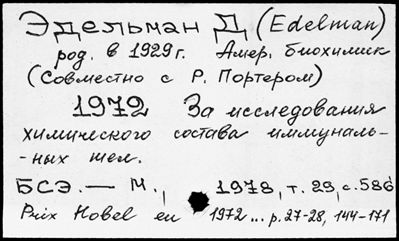 Эдельман Д (Edelman)
род. в 1929 г. Амер. биохимик
(Совместно с Р. Портером)
1972 За исследования
химического состава иммуналь-
-ных тел.
БСЭ. — М., 1978, т. 29, с. 586
Prix Nobel en 1972 ... p. 27-28, 144-171